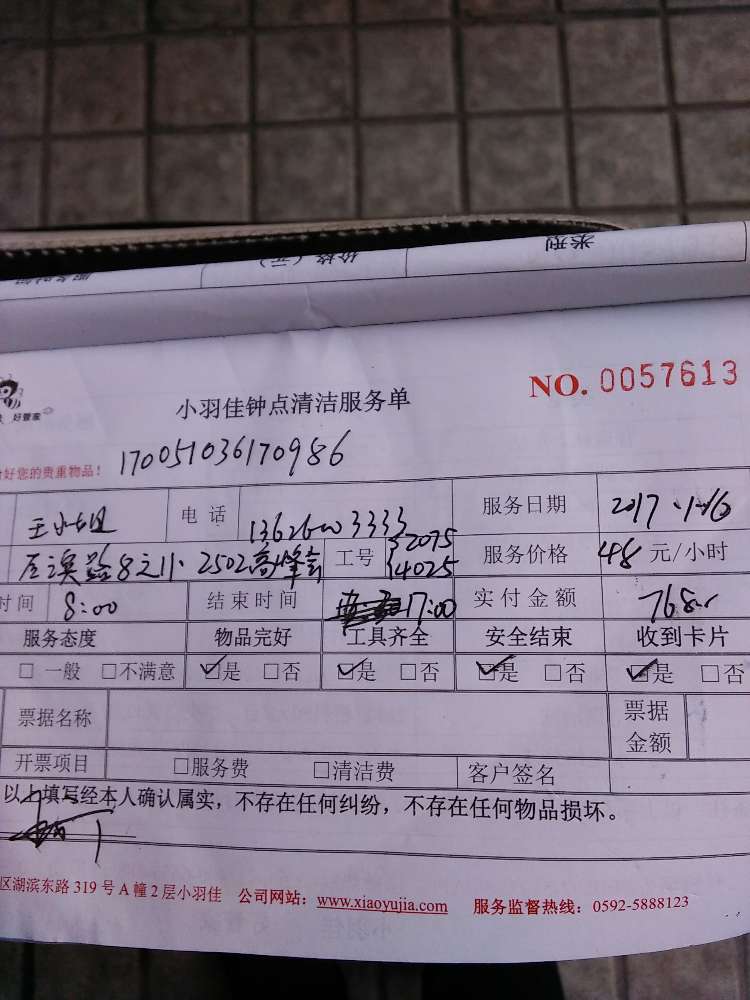 类型
价格（元）
NO. 0057613
小羽佳钟点清洁服务单
好管家
好您的贵重物品！
170051036170986
王小姐 电 话 服务日期 2017.1.16
工号 32075 14025 服务价格 48 元/小时
时间 8:00 结束时间 17:00 实付金额 768
服务态度 物品完好 工具齐全 安全结束 收到卡片
□ 一般 □不满意 ☑是 □否 ☑是 □否 ☑是 □否 ☑是 □否
票据名称 票据金额
开票项目 □服务费 □清洁费 客户签名
以上填写经本人确认属实，不存在任何纠纷，不存在任何物品损坏。
区湖滨东路 319 号 A 幢 2 层小羽佳 公司网站：www.xiaoyujia.com 服务监督热线：0592-5888123